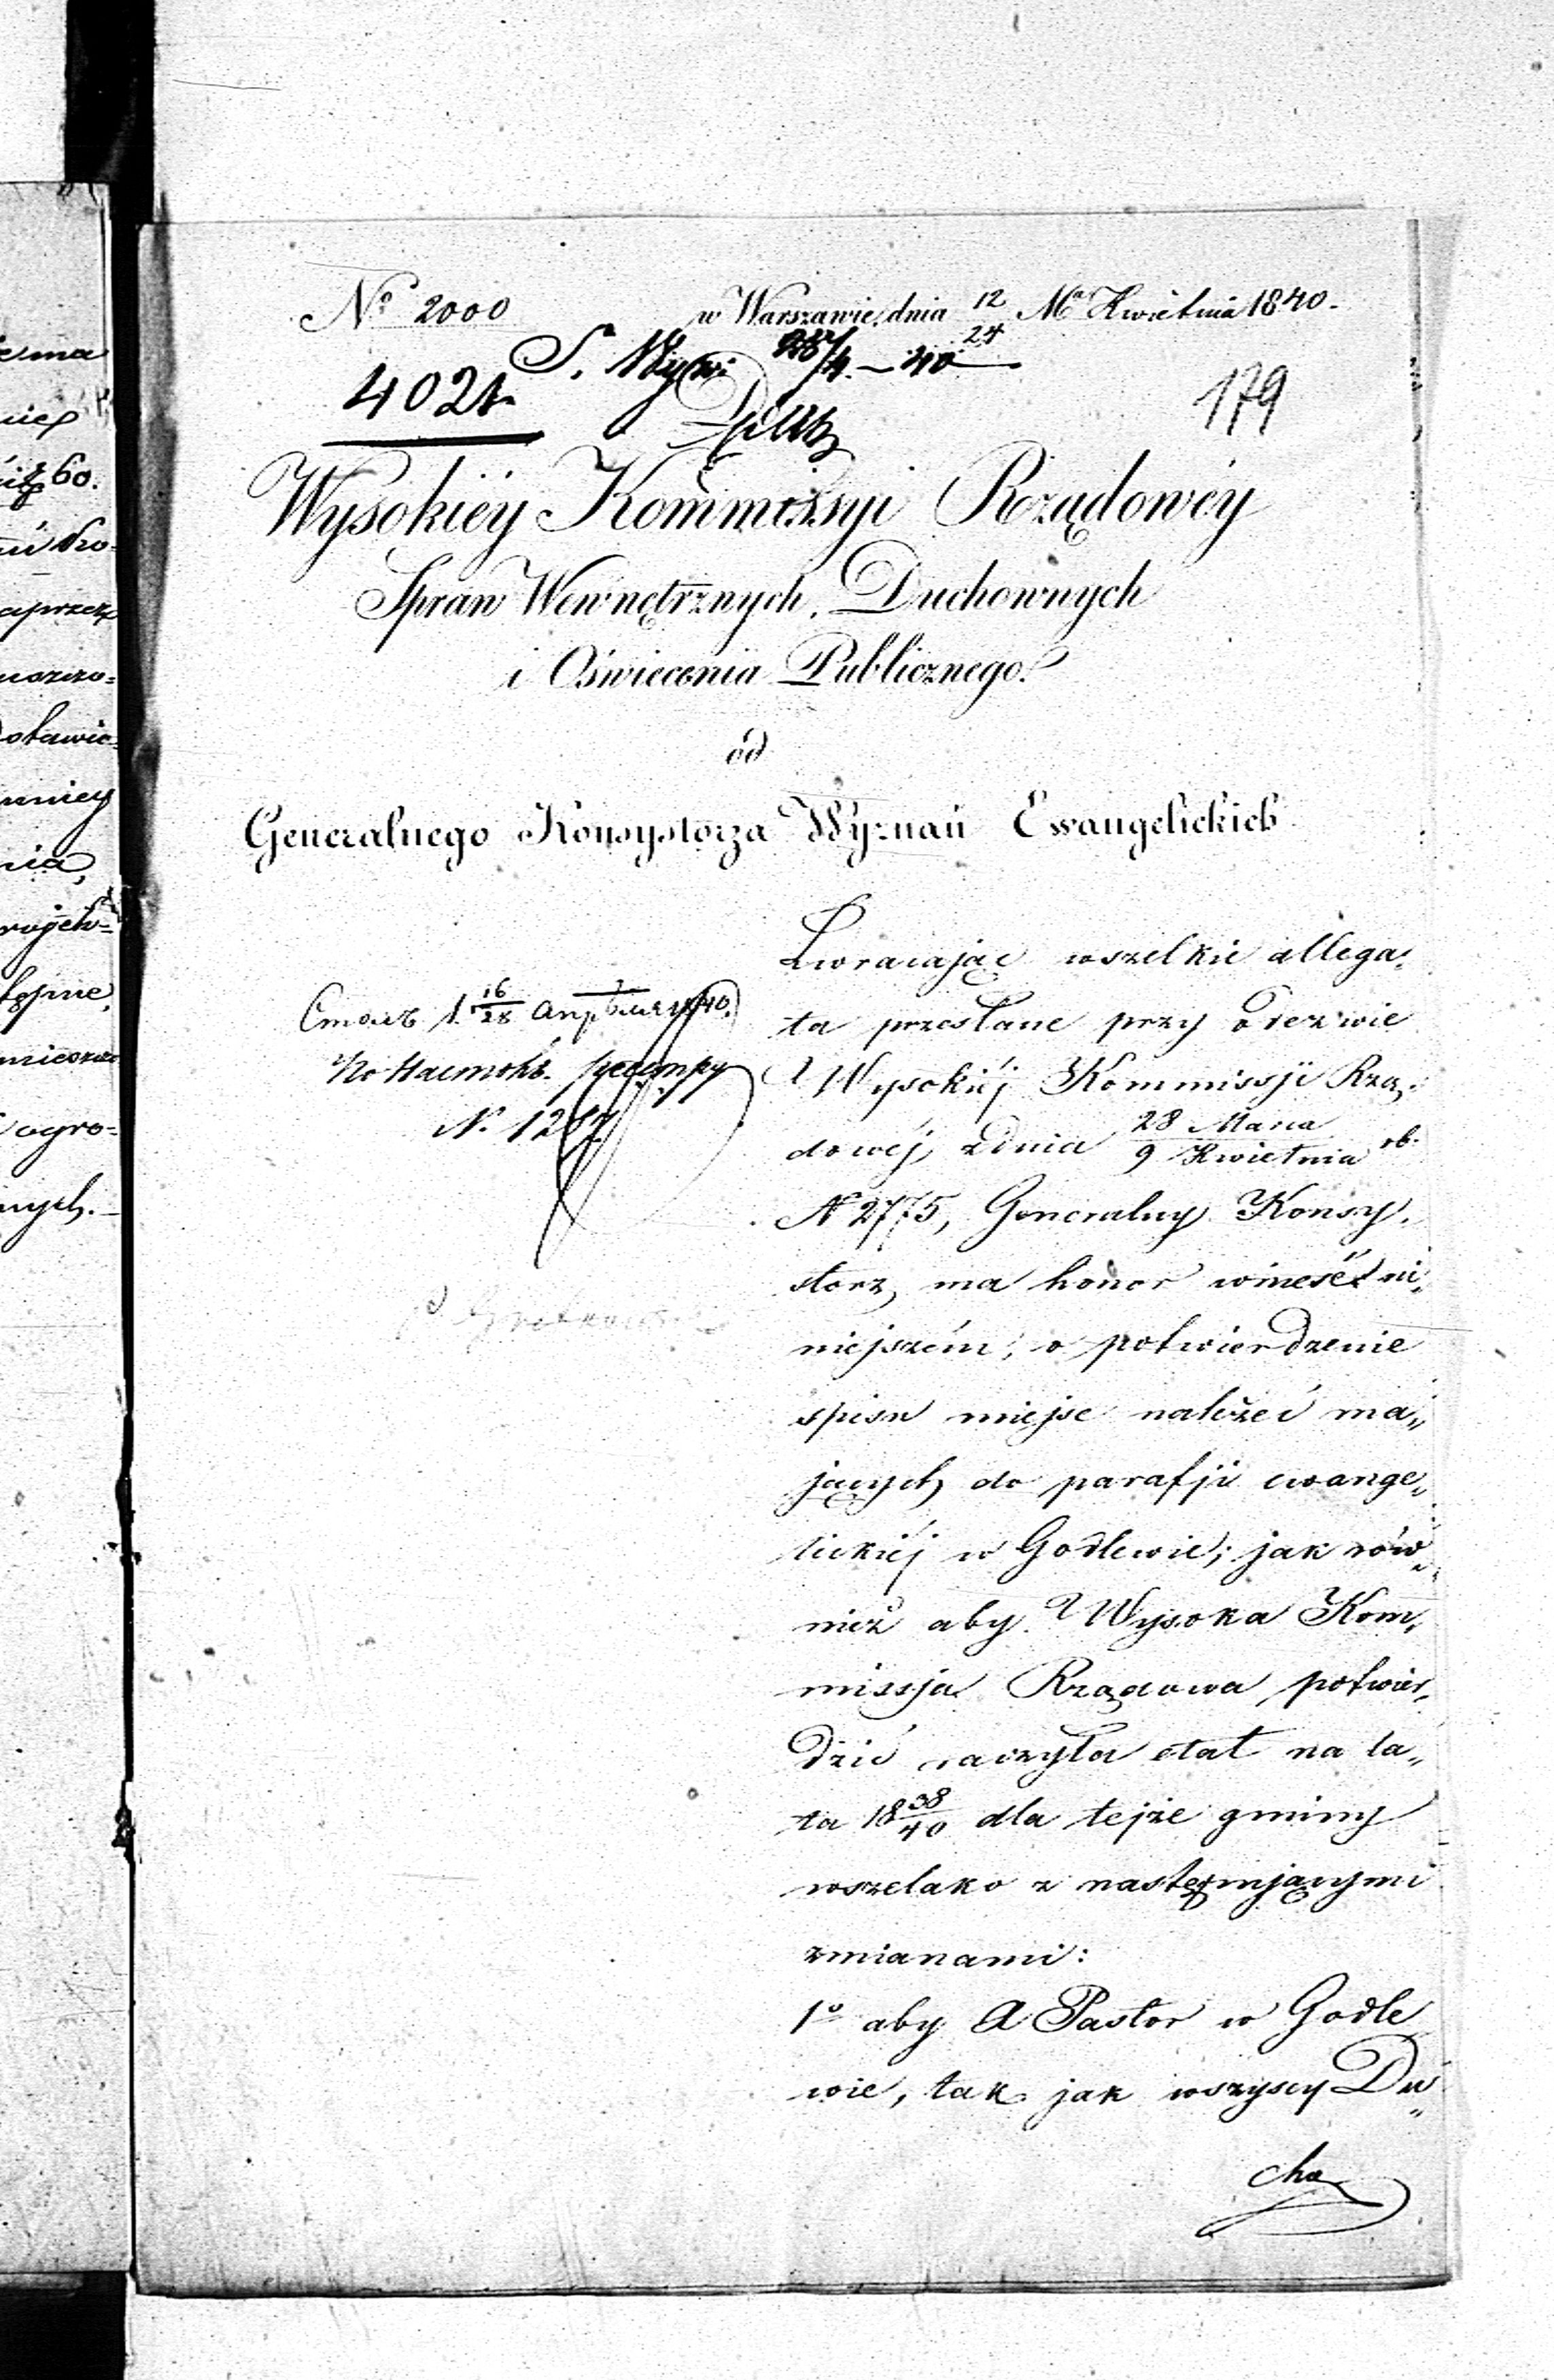 No 2000
w Warszawie, dnia 12/24 Ma Kwietnia 1840.
4021
28/4 – 40
179
Wysokiéy Kommissyi Rządowéy
Spraw Wewnętrznych, Duchownych
i Oświecenia Publicznego.
od
Generalnego Konsystorza Wyznań Ewangelickich
Столъ 1. 16/28 Апрѣля 1840
По Настол. реестру
N. 1287
Zwracając wszelkie allega„
ta przesłane przy odezwie
Wysokiéj Kommissji Rzą„
dowéj, z dnia 28 Marca / 9 Kwietnia rb.
N 2775, Generalny Konsy„
storz, ma honor wnieść ni„
niejszém, o potwierdzenie
spisu miejsc należeć ma„
jących do parafji ewange„
lickiéj w Godlewie; jak rów„
nież aby Wysoka Kom„
missja Rządowa potwier„
dzić raczyła etat na la„
ta 18 38/40 dla tejże gminy
wszelako z następującymi
zmianami:
1o aby a Pastor w Godle
wie, tak jak wszyscy Du„
cho
ma
60.
aprzez
mniey
nia,
ogro=
nych.